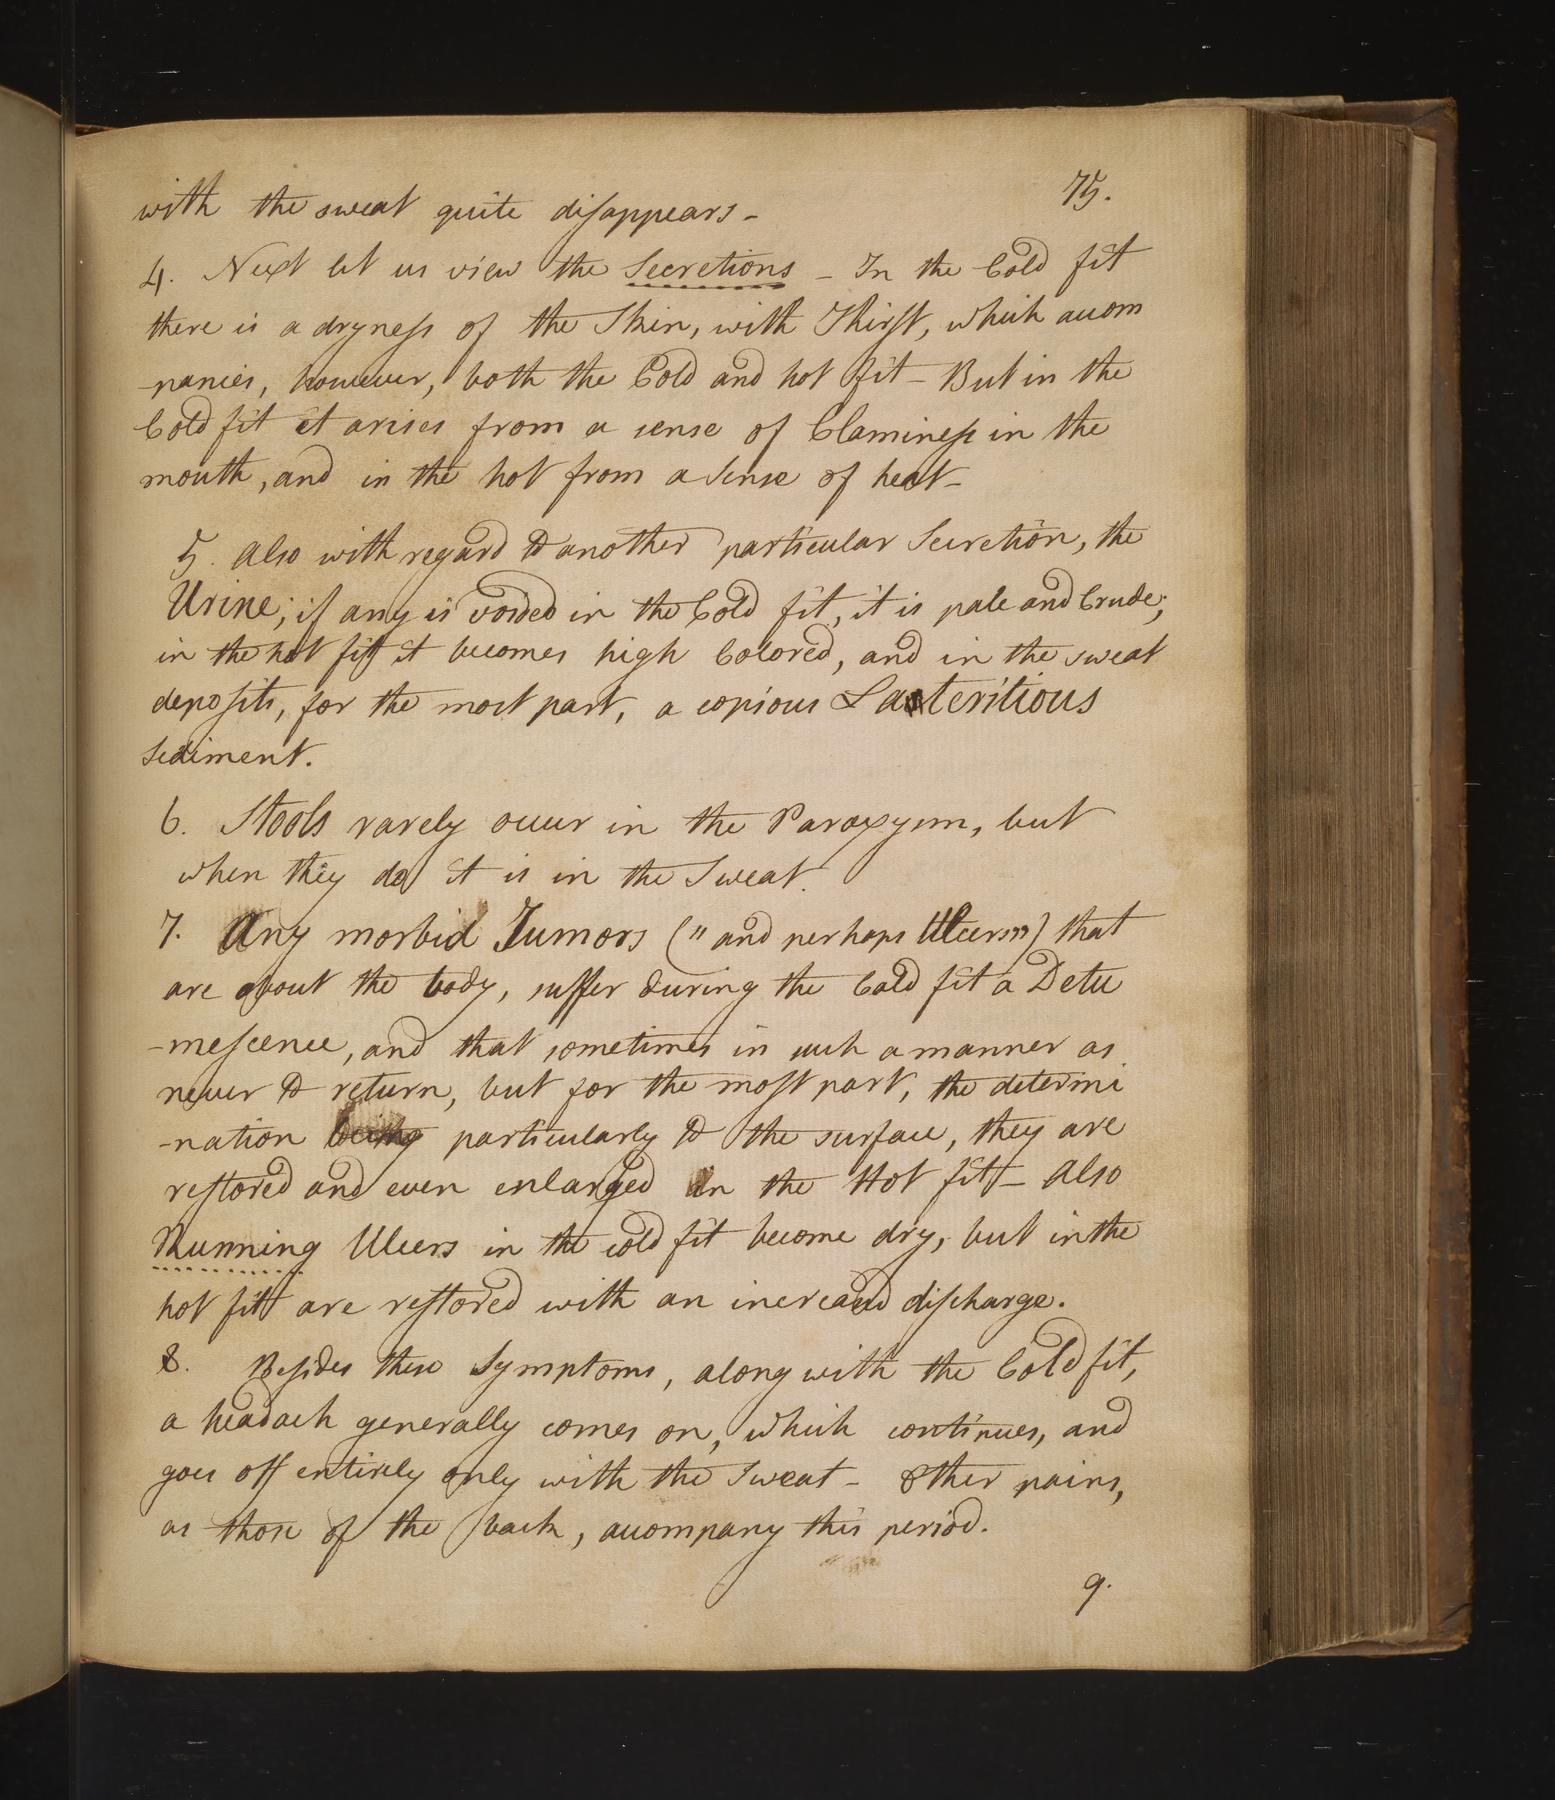 75.
with the sweat quite disappears -
4. Next let us view the Secretions - In the Cold fit
there is a dryness of the Skin, with Thirst, which accom
-panies, however, both the Cold and hot fit - But in the
Cold fit it arises from a sense of Claminess in the
mouth, and in the hot from a Sense of heat -
5. Also with regard to another particular Secretion, the
Urine; if any is voided in the Cold fit, it is pale and Crude;
in the hot fit it becomes high Colored, and in the sweat
deposits, for the most part, a copious Lateritious
Sediment.
6. Stools rarely occur in the Paroxysm, but
when they do it is in the Sweat.
7. Any morbid Tumors ("and perhaps Ulcers") that
are about the body, suffer during the Cold fit a Detu
-mescence, and that sometimes in such a manner as
never to return, but for the most part, the determi
-nation being particularly to the surface, they are
restored and even enlarged in the Hot fit - Also
Running Ulcers in the cold fit become dry, but in the
hot fit are restored with an increased discharge.
8. Besides these Symptoms, along with the Cold fit,
a headach generally comes on, which continues, and
goes off entirely only with the Sweat - Other pains,
as those of the back, accompany this period.
9.